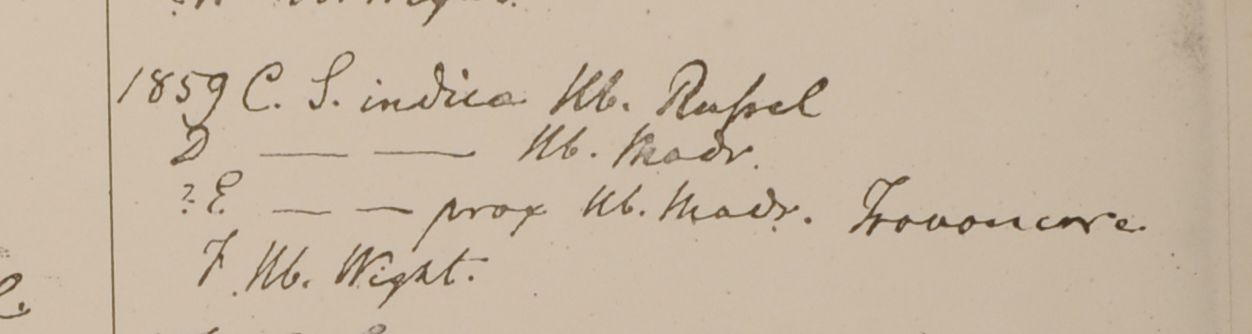 1859 C. S. indica Hb. Russel
D — — Hb. Madr.
?E — — prox Hb. Madr. Travancore
F. Hb. Wight.